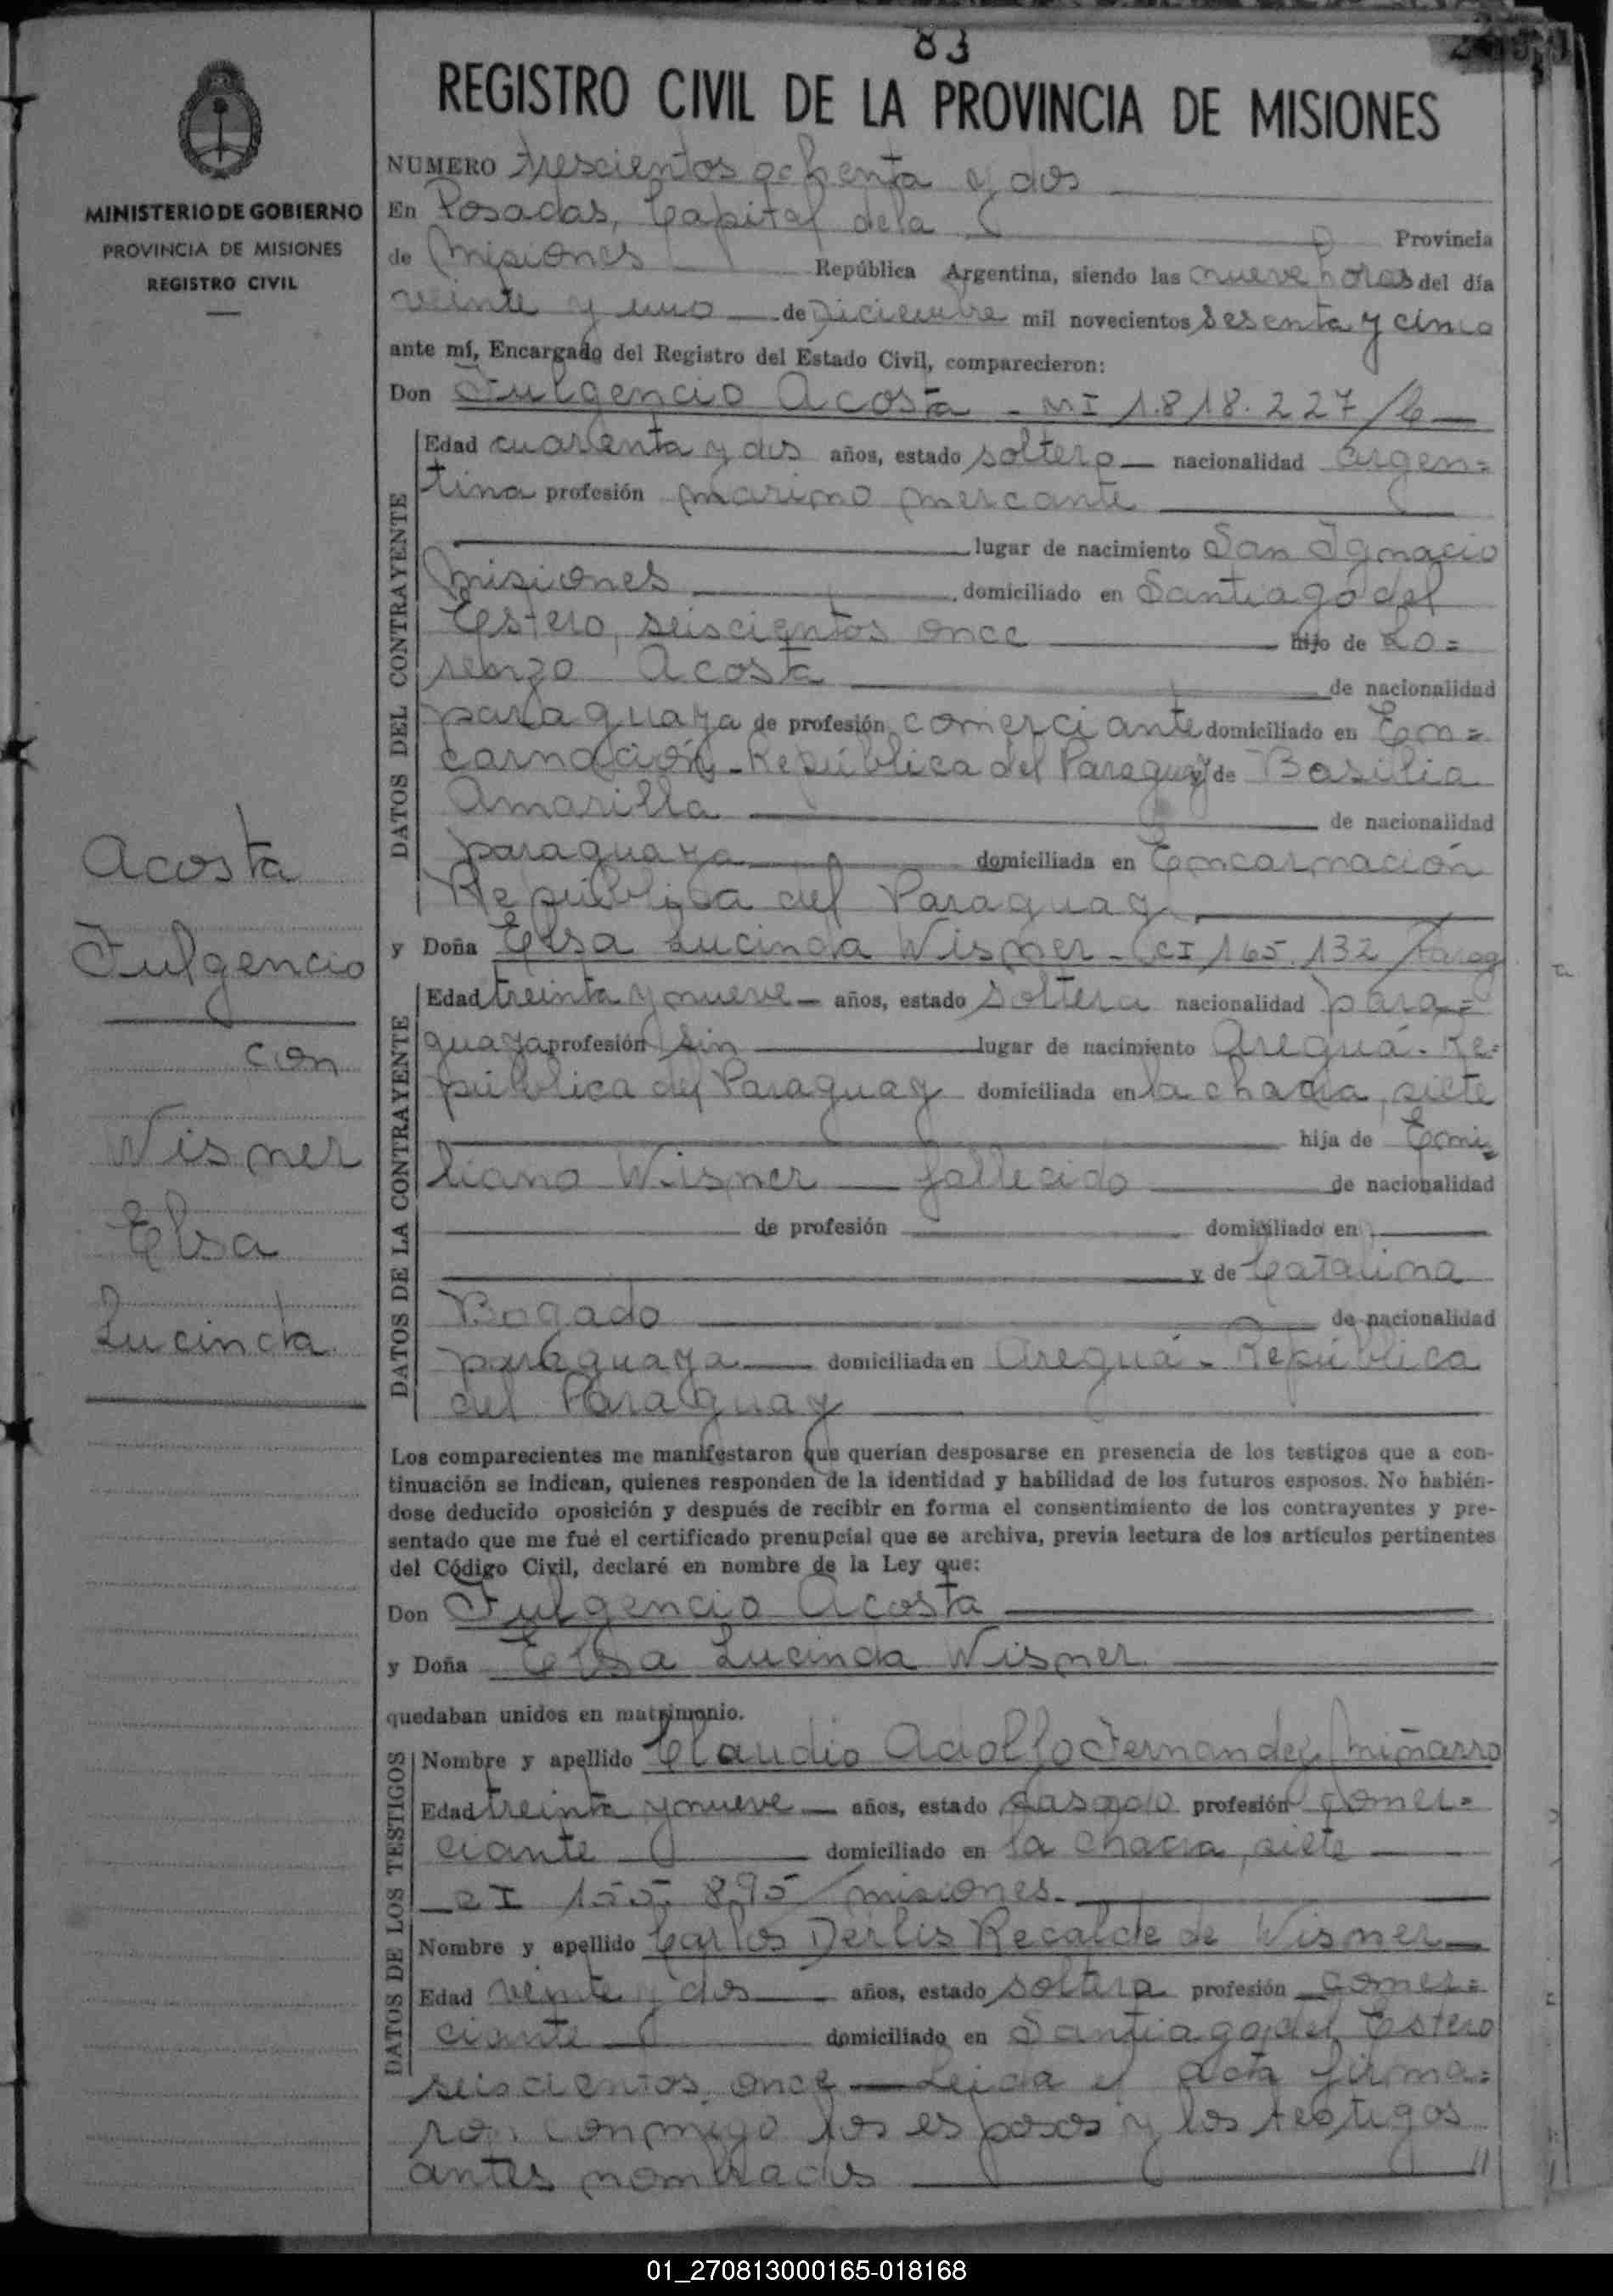 83
REGISTRO CIVIL DE LA PROVINCIA DE MISIONES
MINISTERIO DE GOBIERNO
PROVINCIA DE MISIONES
REGISTRO CIVIL
Acosta
Fulgencio
con
Wismer
Elsa
Lucinda
NUMERO trescientos ochenta y dos
En Posadas, Capital de la Provincia
de Misiones República Argentina, siendo las nueve horas del día
veinte y uno de Diciembre mil novecientos sesenta y cinco
ante mí, Encargado del Registro del Estado Civil, comparecieron:
Don Fulgencio Acosta - MI 1.818.227/6
DATOS DEL CONTRAYENTE
Edad cuarenta y dos años, estado soltero nacionalidad argen=
tina profesión marino mercante
lugar de nacimiento San Ignacio
Misiones domiciliado en Santiago del
Estero, seiscientos once hijo de Lo=
renzo Acosta de nacionalidad
paraguaya de profesión comerciante domiciliado en En=
carnación - República del Paraguay y de Basilia
Amarilla de nacionalidad
paraguaya domiciliada en Encarnación
República del Paraguay
y Doña Elsa Lucinda Wismer - CI 165.132/Parag
DATOS DE LA CONTRAYENTE
Edad treinta y nueve años, estado soltera nacionalidad para=
guaya profesión sin lugar de nacimiento Areguá - Re=
pública del Paraguay domiciliada en la chacra, siete
hija de Emi=
liano Wismer fallecido de nacionalidad
de profesión domiciliado en
y de Catalina
Bogado de nacionalidad
paraguaya domiciliada en Areguá - República
del Paraguay
Los comparecientes me manifestaron que querían desposarse en presencia de los testigos que a con-
tinuación se indican, quienes responden de la identidad y habilidad de los futuros esposos. No habién-
dose deducido oposición y después de recibir en forma el consentimiento de los contrayentes y pre-
sentado que me fué el certificado prenupcial que se archiva, previa lectura de los artículos pertinentes
del Código Civil, declaré en nombre de la Ley que:
Don Fulgencio Acosta
y Doña Elsa Lucinda Wismer
quedaban unidos en matrimonio.
DATOS DE LOS TESTIGOS
Nombre y apellido Claudio Adolfo Fernandez Miñarro
Edad treinta y nueve años, estado casado profesión comer=
ciante domiciliado en la chacra, siete
CI 155.895/misiones.
Nombre y apellido Carlos Derlis Recalde de Wismer
Edad veinte y dos años, estado soltero profesión comer=
ciante domiciliado en Santiago del Estero
seiscientos once - Leida el acta firma=
ron conmigo los esposos y los testigos
antes nombrados //
01_270813000165-018168